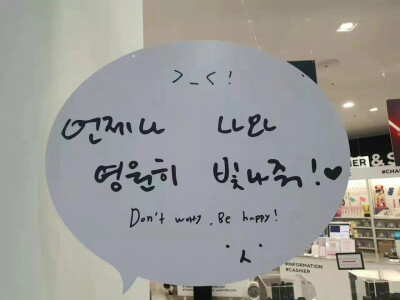 >_<!
언제나 나와
영원히 빛나줘!♥
Don't worry, Be happy!
ER & S
#CHA
#INFORMATION
#CASHIER